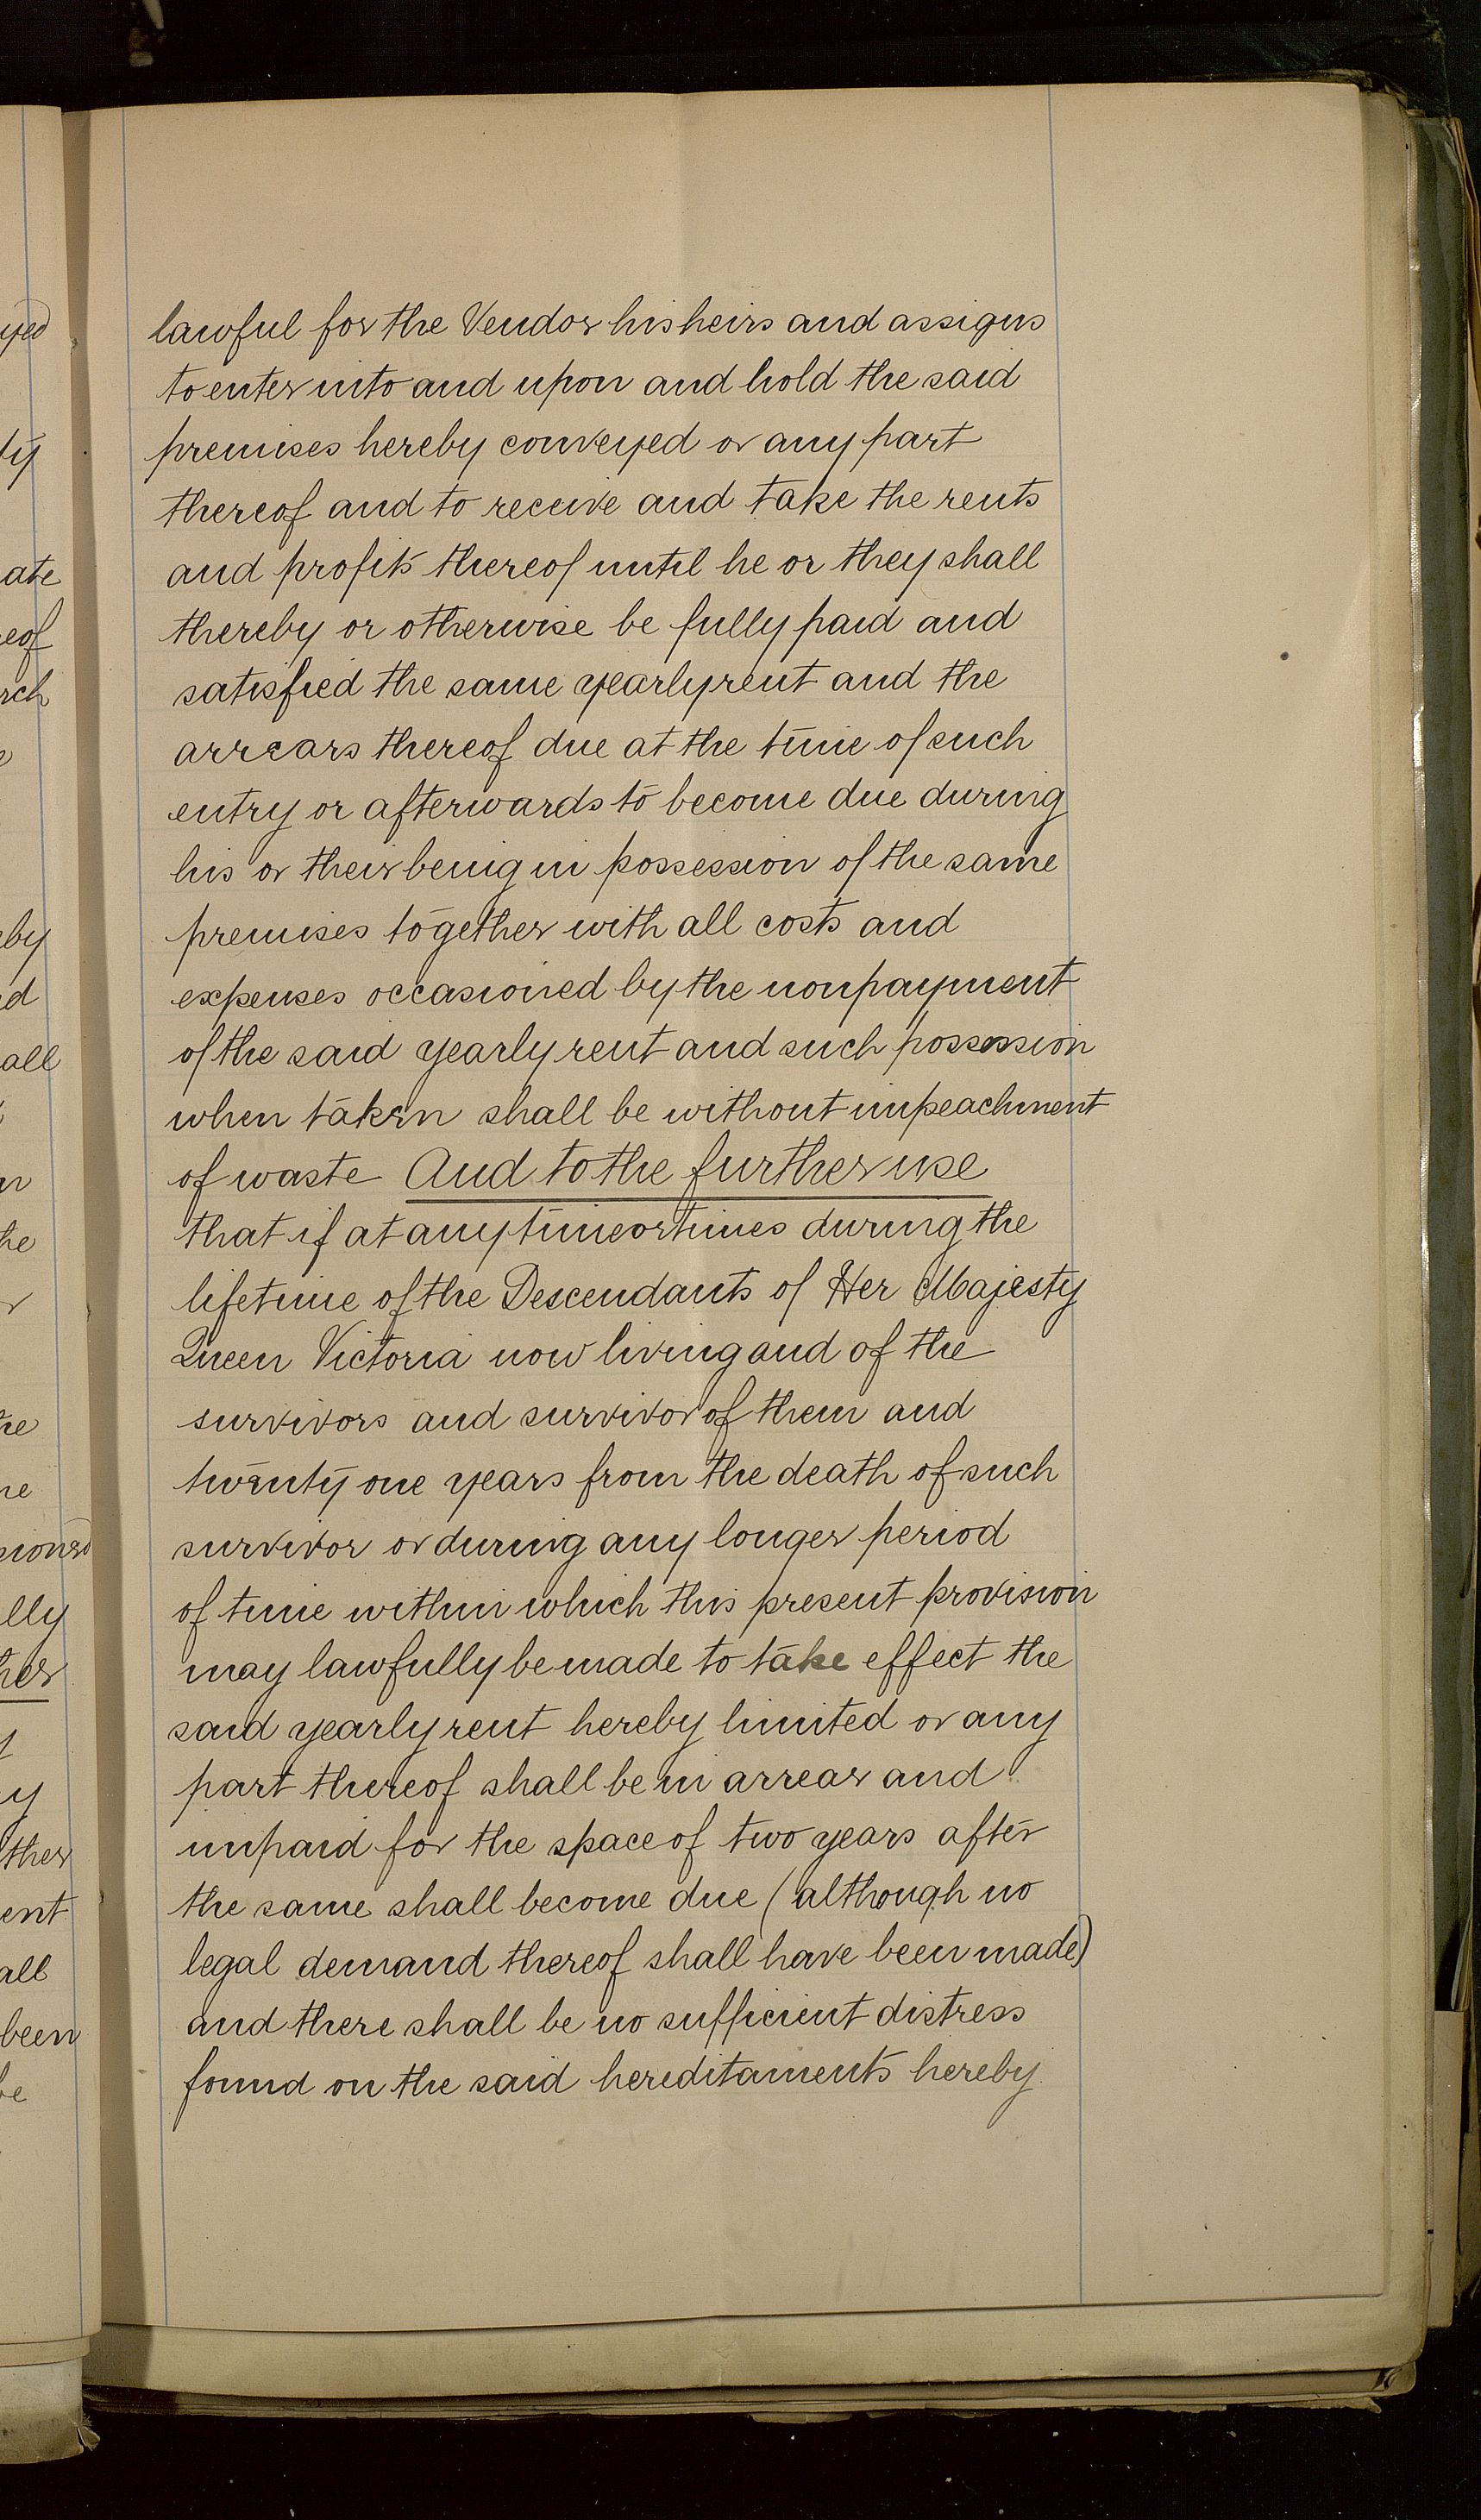 lawful for the Vendor his heirs and assigns
to enter into and upon and hold the said
premises hereby conveyed or any part
thereof and to receive and take the rents
and profits thereof until he or they shall
thereby or otherwise be fully paid and
satisfied the same yearly rent and the
arrears thereof due at the time of such
entry or afterwards to become due during
his or their being in possession of the same
premises together with all costs and
expenses occasioned by the nonpayment
of the said yearly rent and such possession
when taken shall be without impeachment
of waste And to the further use
that if at any time or times during the
lifetime of the Descendants of Her Majesty
Queen Victoria now living and of the
survivors and survivor of them and
twenty one years from the death of such
survivor or during any longer period
of time within which this present provision
may lawfully be made to take effect the
said yearly rent hereby limited or any
part thereof shall be in arrear and
unpaid for the space of two years after
the same shall become due (although no
legal demand thereof shall have been made)
and there shall be no sufficient distress
found on the said hereditaments hereby